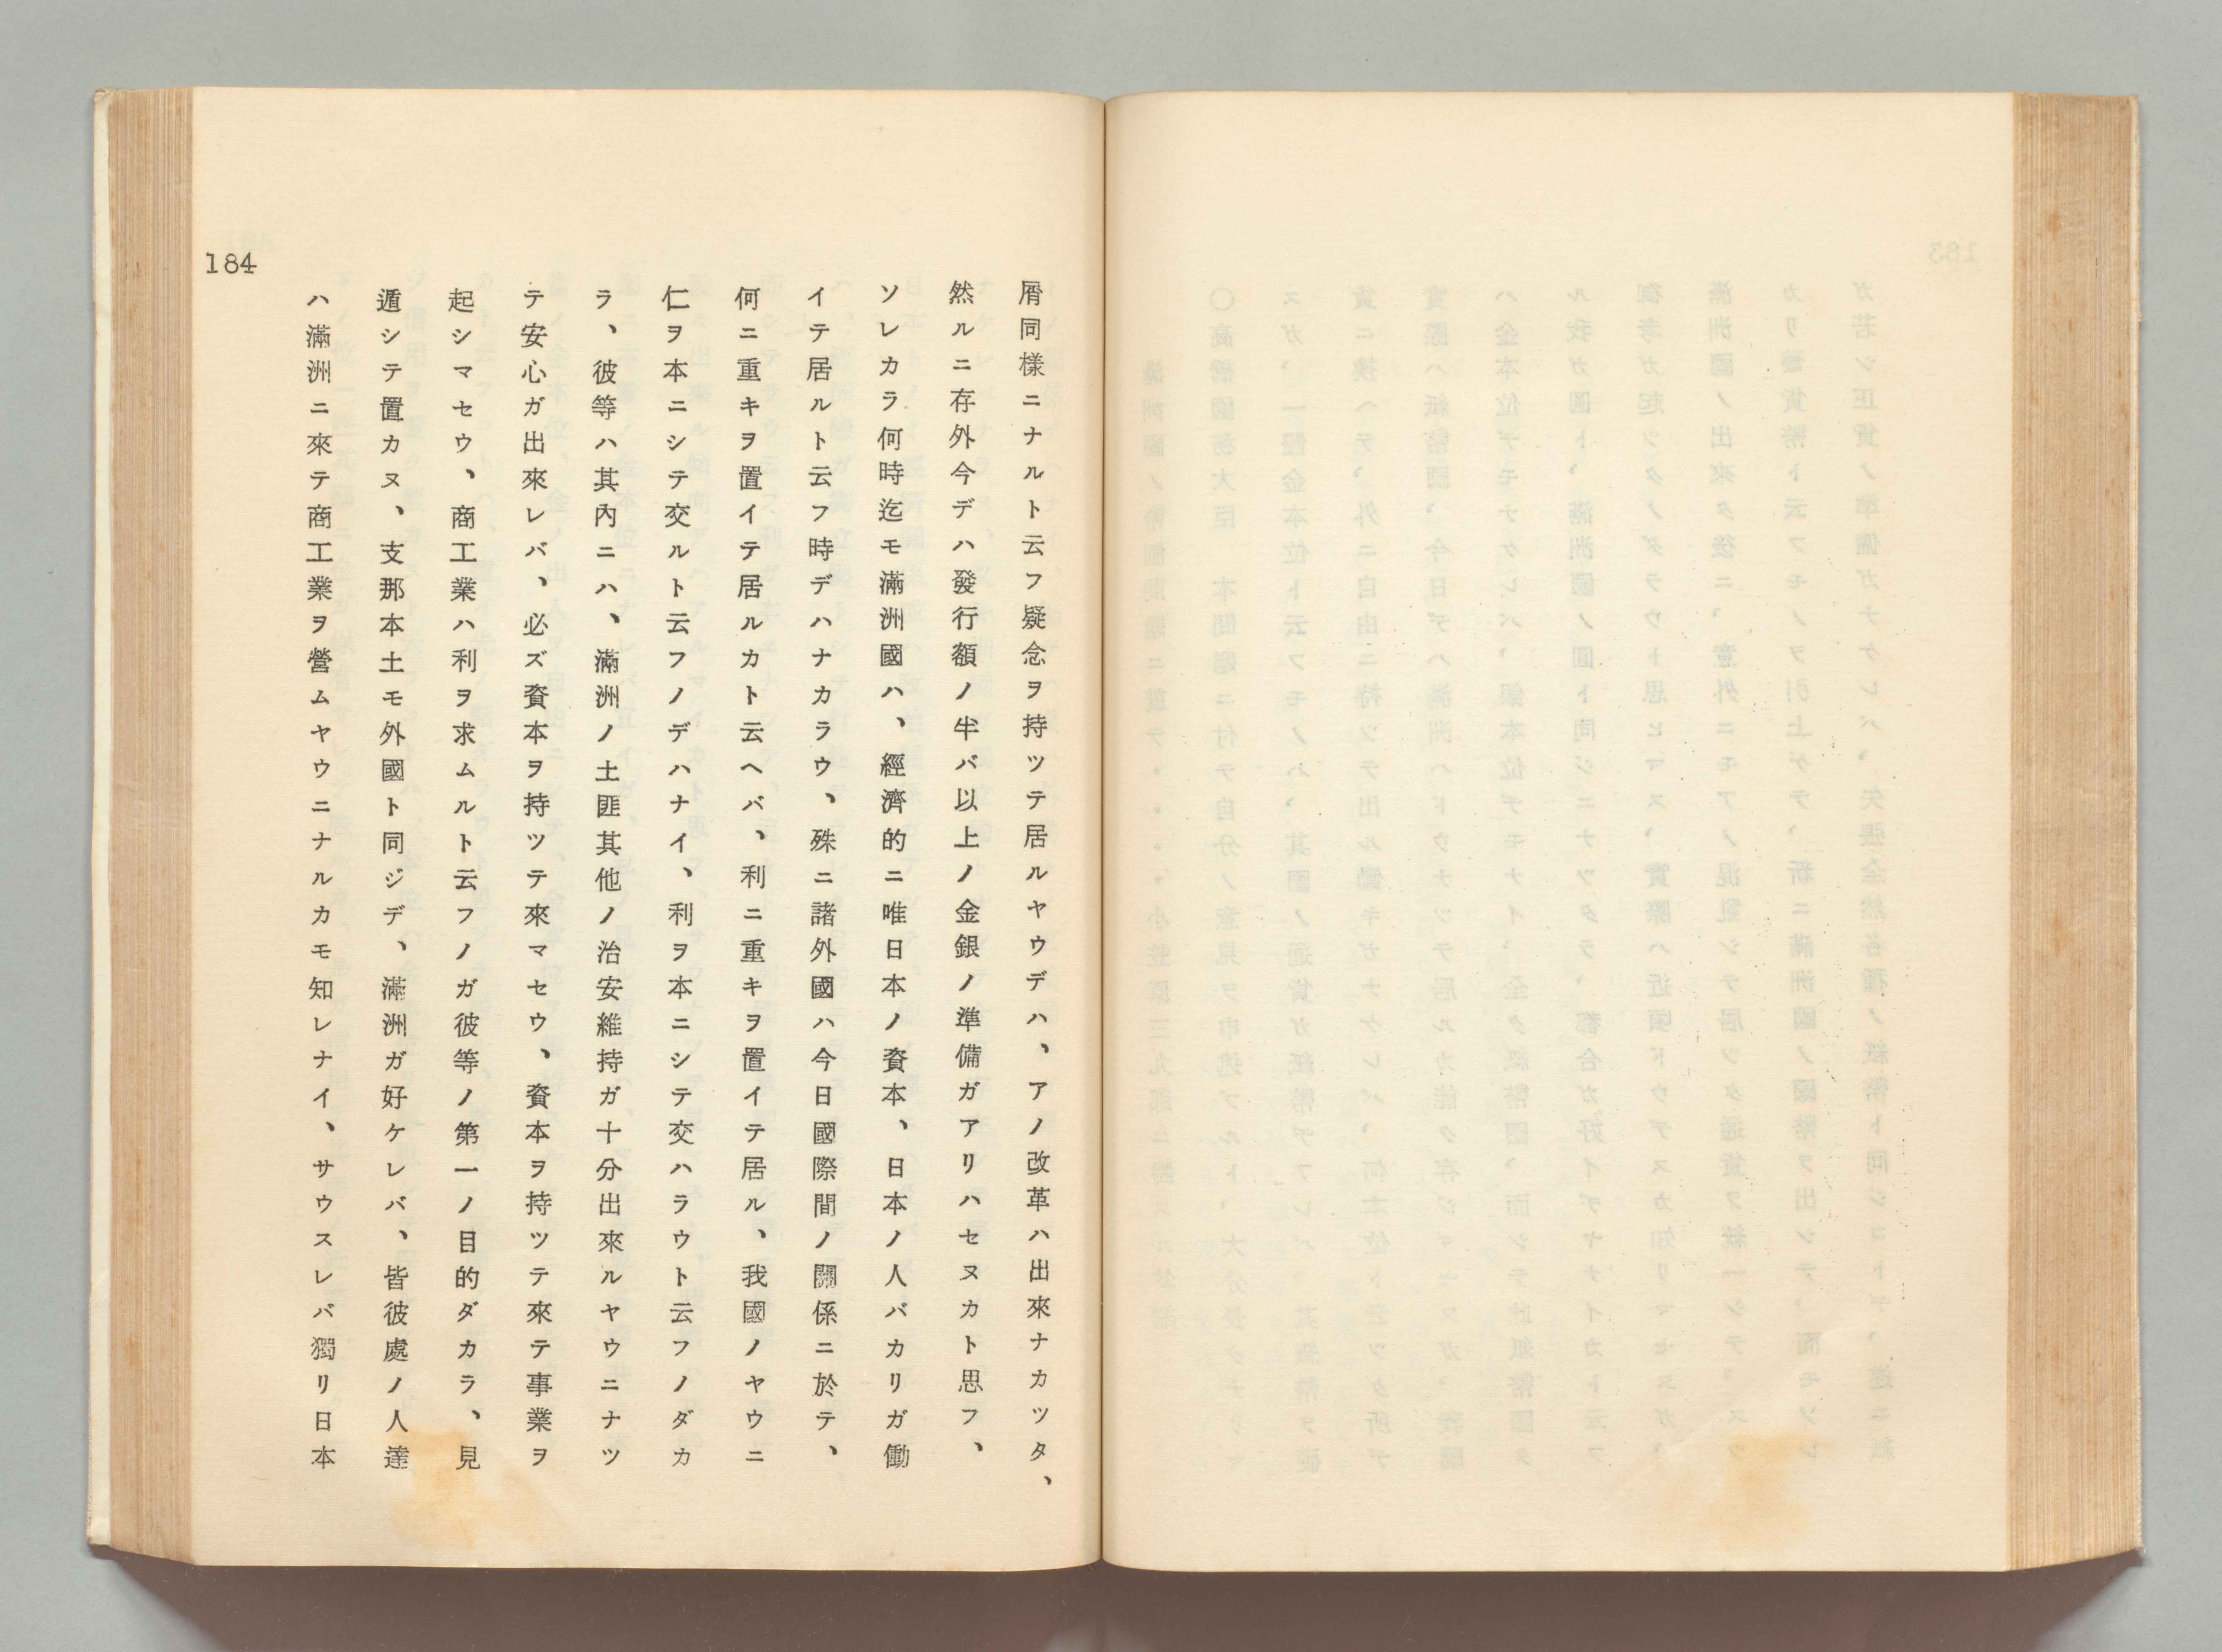 屑同様ニナルト云フ疑念ヲ持ツテ居ルヤウデハ、アノ改革ハ出來ナカツタ、
然ルニ存外今デハ發行額ノ半バ以上ノ金銀ノ準備ガアリハセヌカト思フ、
ソレカラ何時迄モ滿洲國ハ、經濟的ニ唯日本ノ資本、日本ノ人バカリガ働
イテ居ルト云フ時デハナカラウ、殊ニ諸外國ハ今日國際間ノ關係ニ於テ、
何ニ重キヲ置イテ居ルカト云ヘバ、利ニ重キヲ置イテ居ル、我國ノヤウニ
仁ヲ本ニシテ交ルト云フノデハナイ、利ヲ本ニシテ交ハラウト云フノダカ
ラ、彼等ハ其內ニハ、滿洲ノ土匪其他ノ治安維持ガ十分出來ルヤウニナツ
テ安心ガ出來レバ、必ズ資本ヲ持ツテ來マセウ、資本ヲ持ツテ來テ事業ヲ
起シマセウ、商工業ハ利ヲ求ムルト云フノガ彼等ノ第一ノ目的ダカラ、見
遁シテ置カヌ、支那本土モ外國ト同ジデ、滿洲ガ好ケレバ、皆彼處ノ人達
ハ滿洲ニ來テ商工業ヲ營ムヤウニナルカモ知レナイ、サウスレバ獨リ日本
184